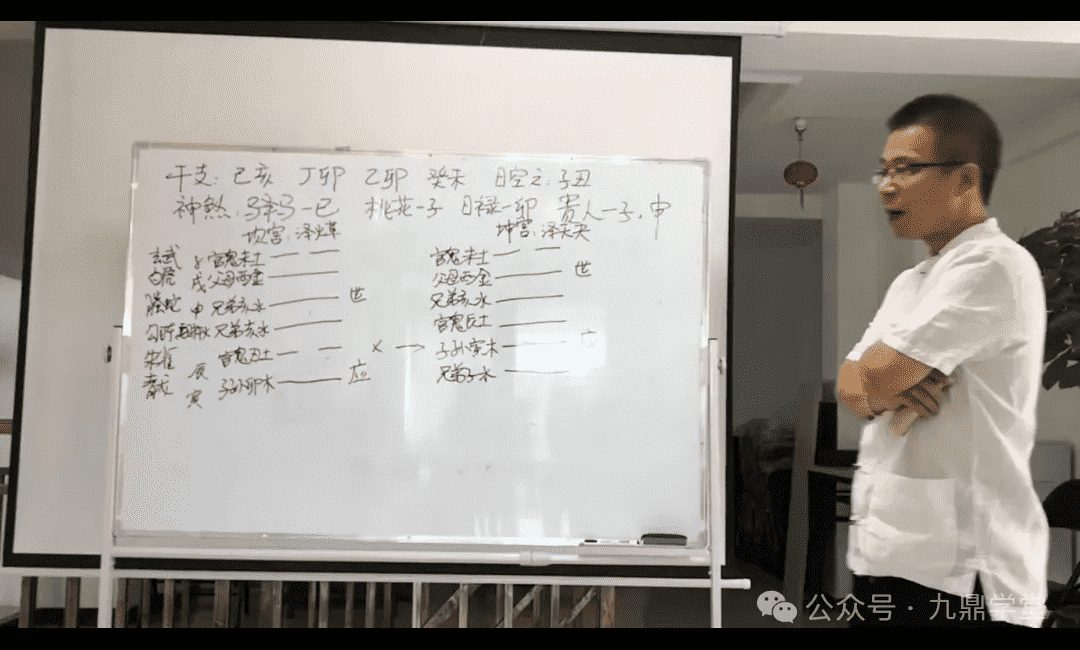 干支：己亥 丁卯 乙卯 癸未 日空亡：子丑
神煞：驿马一巳 桃花一子 日禄一卯 贵人一子、申
坎宫：泽火革 坤宫：泽天夬
玄武 子 官鬼未土 官鬼未土
白虎 戌 父母酉金 父母酉金 世
螣蛇 申 兄弟亥水 世 兄弟亥水
勾陈 兄弟亥水 官鬼辰土
朱雀 辰 官鬼丑土 X → 子孙寅木 应
青龙 寅 子孙卯木 应 兄弟子水
公众号·九鼎学堂